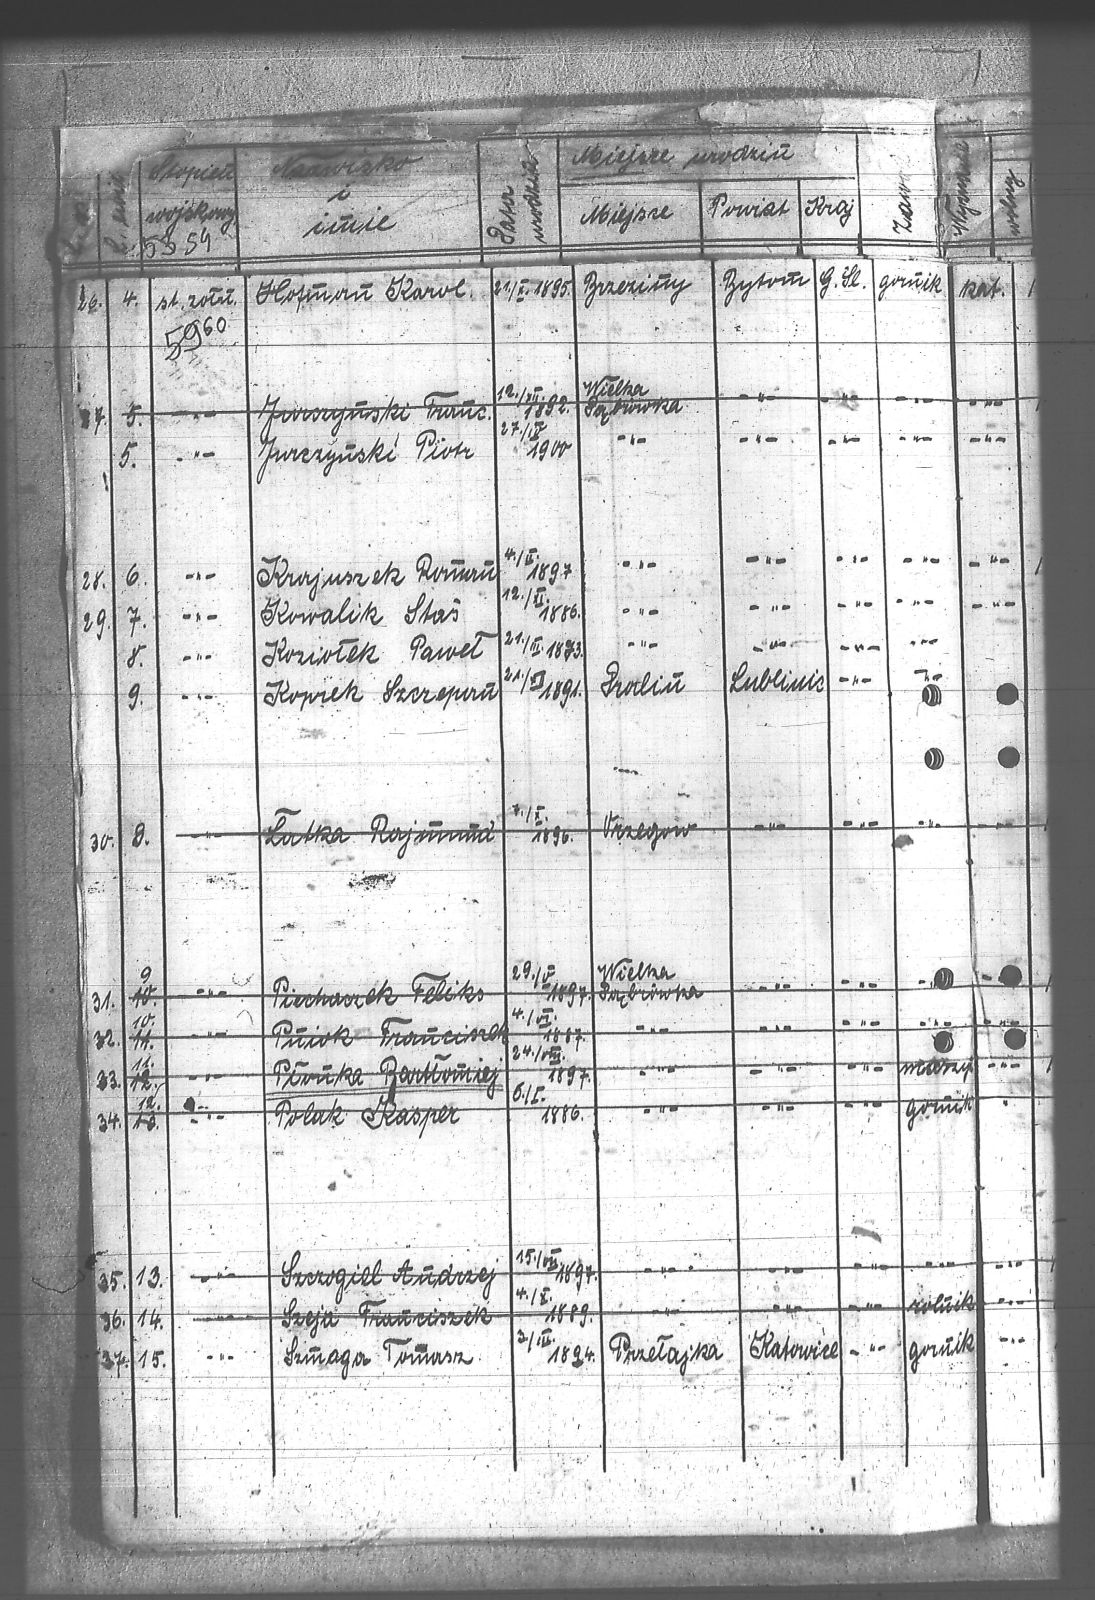 Stopień wojskowy Nazwisko i imie Data urodzin Miejsce urodzin Miejsce Powiat Kraj Zaw. Wyznanie wolny
5354
26. 4. st. żołn. Hofman Karol. 1895. Brzeziny Bytom G. Sl. gornik kat. 1
5960
27. 5. -"- Jurszyński Franc. 12./VII. 1892. Wielka Dąbrówka -"- -"- -"- -"-
5. -"- Jurzzyński Piotr 27./IV 1900 -"- -"- -"- -"- -"-
28. 6. -"- Krajuszek Roman 4./II. 1897 -"- -"- -"- -"- -"- 1
29. 7. -"- Kowalik Staś 12./XI. 1886. -"- -"- -"- -"- -"-
8. -"- Koziołek Paweł 21./III. 1873. -"- -"- -"- -"-
9. -"- Koprek Szczepan 1891. Lublinic -"- -"-
30. 8. -"- Łatka Rajmund 1896. Orzegow -"- -"- -"- -"- 1
31. 9 10. -"- Piechaczek Feliks 29./V 1897. Wielka Dąbrówka -"- -"- -"- 1
32. 10. 11. -"- Pniok Franciszek 4./VI. 1887. -"- -"- -"- -"-
33. 11. 12. -"- Płonka Bartłomiej 24./VIII. 1897. -"- -"- -"- maszy. -"- 1
34. 12. 13. -"- Polak Kasper 6./I. 1886. -"- -"- -"- gornik
35. 13. -"- Szczogiel Andrzej 15./VII 1897. -"- -"- -"- -"- -"- 1
36. 14. -"- Szeja Franciszek 4./X. 1889. -"- -"- -"- rolnik -"-
37. 15. -"- Szmaga Tomasz 1894. Przełajka Katowice -"- gornik -"-